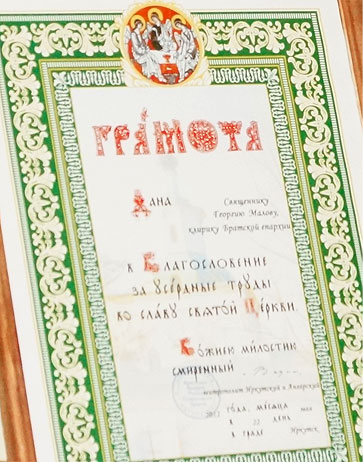 ГРА́МОТА
Дана Священнику
Георгию Малову,
клирику Братской епархии
в Благословение
за усердные труды
во славу святой Церкви.
Божиею милостию
смиренный
митрополит Иркутский и Ангарский
года, месяца мая
в 22 день
в граде Иркутск